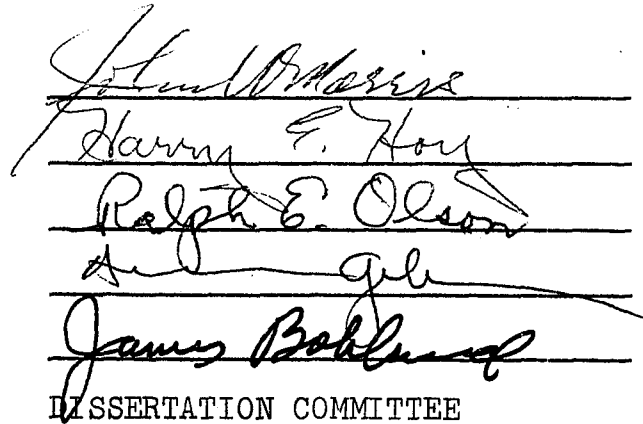 John W Morris
Harry E. Hoy
Ralph E. Olson
James
DISSERTATION COMMITTEE